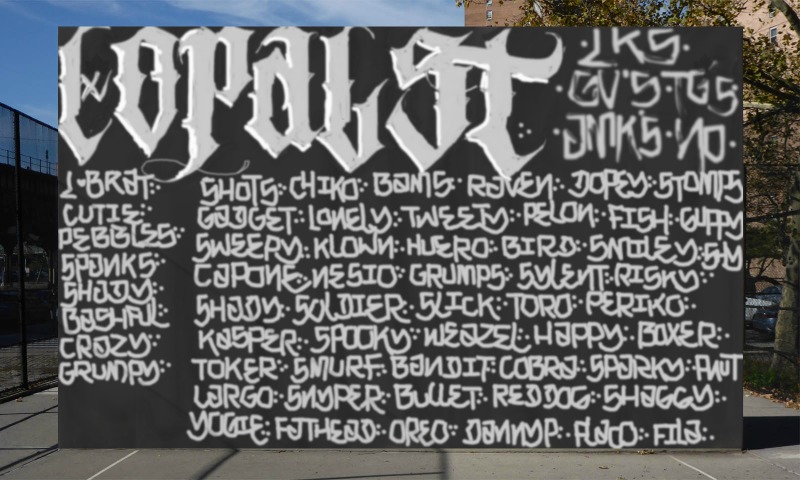 COPALST
LKS
GV'S TG'S
JMK'S NO
L·BRAT
CUTIE
PEBBLES
SPANKS
SHADY
BASHFUL
CRAZY
GRUMPY
SHOTS CHIKO BAMS RAVEN DOPEY STOMPS
GADGET LONELY TWEETY PELON FISH GUPPY
SWEEPY KLOWN HUERO BIRD SMILEY
CAPONE NESIO GRUMPS SYLENT RISKY
SHADY SOLDIER SLICK TORO PERIKO
KASPER SPOOKY WEAZEL HAPPY BOXER
TOKER SMURF BANDIT COBRA SPARKY
LARGO SNYPER BULLET RED DOG SHAGGY
YOGIE FATHEAD OREO FLACO FILA